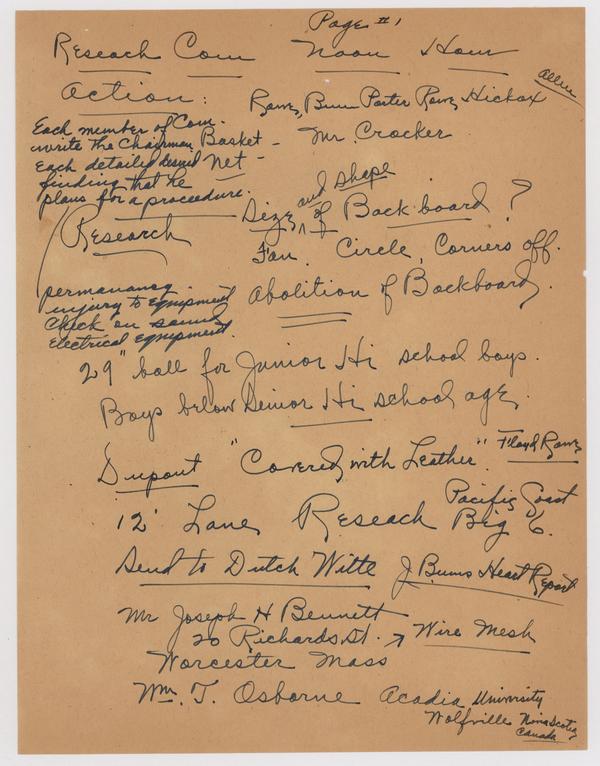 Page #1
Reseach Com Noon Hour
Allen
Action:
Rowe, Bunn Porter Rowe, Hickox
Mr. Crocker
Each member of Com.
write the Chairman
Each detailed
finding that he
plans for a proceedure.
Basket-
Net-
Research
Size and shape of Back board?
Fan. Circle, Corners off.
Abolition of Backboard,
injury to equipment
Check on sound
Electrical equipment.
29" ball for Junior Hi school boys.
Boys below Senior Hi school age,
Dupont "Covered with Leather". Floyd Rowe
12' Lane, Reseach Pacific Coast
Big 6.
Send to Dutch Witte J Bunns Heart Report
Mr Joseph H Bennett
20 Richards St. → Wire Mesh
Worcester Mass
Wm. T. Osborne Acadia University
Wolfville Nova Scotia
Canada